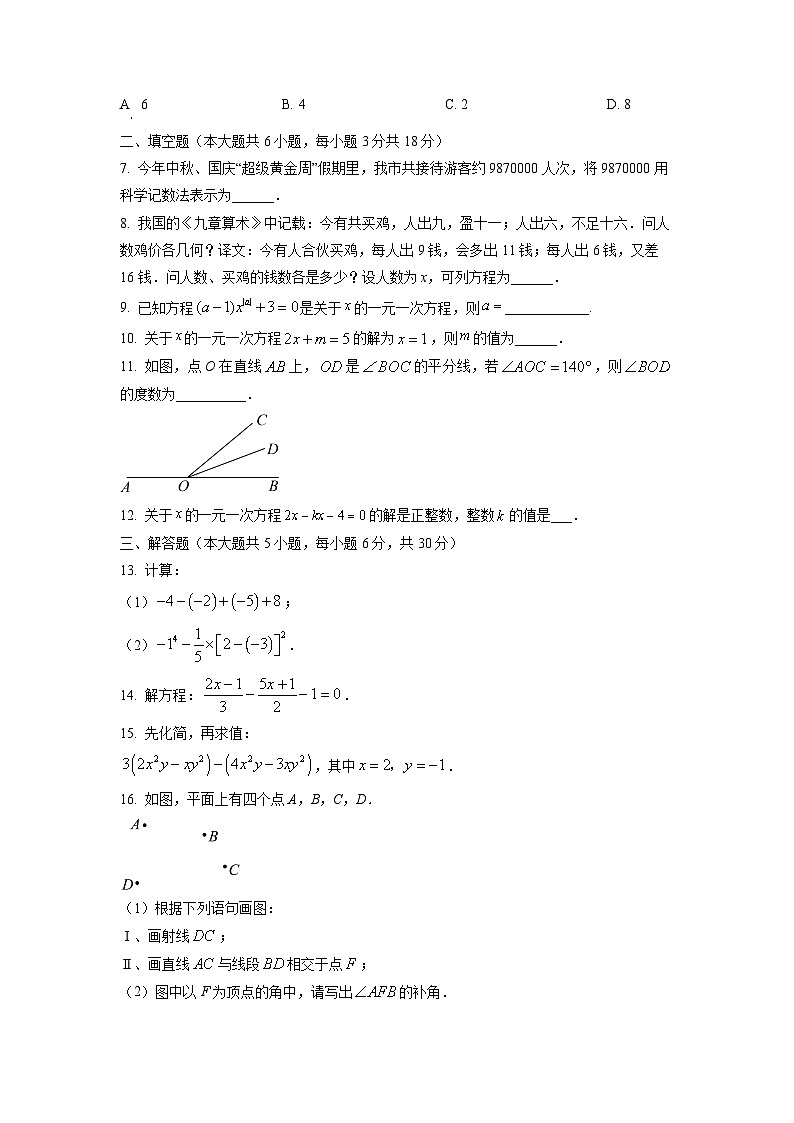 A. 6 B. 4 C. 2 D. 8
二、填空题（本大题共 6 小题，每小题 3 分共 18 分）
7. 今年中秋、国庆“超级黄金周”假期里，我市共接待游客约 9870000 人次，将 9870000 用
科学记数法表示为______．
8. 我国的《九章算术》中记载：今有共买鸡，人出九，盈十一；人出六，不足十六．问人
数鸡价各几何？译文：今有人合伙买鸡，每人出 9 钱，会多出 11 钱；每人出 6 钱，又差
16 钱．问人数、买鸡的钱数各是多少？设人数为 x，可列方程为______．
9. 已知方程 (a−1)x^|a|+3=0是关于 x 的一元一次方程，则 a = ____________.
10. 关于 x 的一元一次方程 2x+m=5 的解为 x=1，则 m 的值为______．
11. 如图，点 O 在直线 AB 上，OD 是 ∠BOC 的平分线，若 ∠AOC=140°，则 ∠BOD
的度数为__________．
C
D
A O B
12. 关于 x 的一元一次方程 2x−kx−4=0 的解是正整数，整数 k 的值是___．
三、解答题（本大题共 5 小题，每小题 6 分，共 30 分）
13. 计算：
（1）−4−(−2)+(−5)+8；
（2）−1⁴−1/5×[2−(−3)]²．
14. 解方程：(2x−1)/3−(5x+1)/2−1=0．
15. 先化简，再求值：
3(2x²y−xy²)−(4x²y−3xy²)，其中 x=2，y=−1．
16. 如图，平面上有四个点 A，B，C，D．
A
B
C
D
（1）根据下列语句画图：
Ⅰ、画射线 DC；
Ⅱ、画直线 AC 与线段 BD 相交于点 F；
（2）图中以 F 为顶点的角中，请写出∠AFB 的补角．